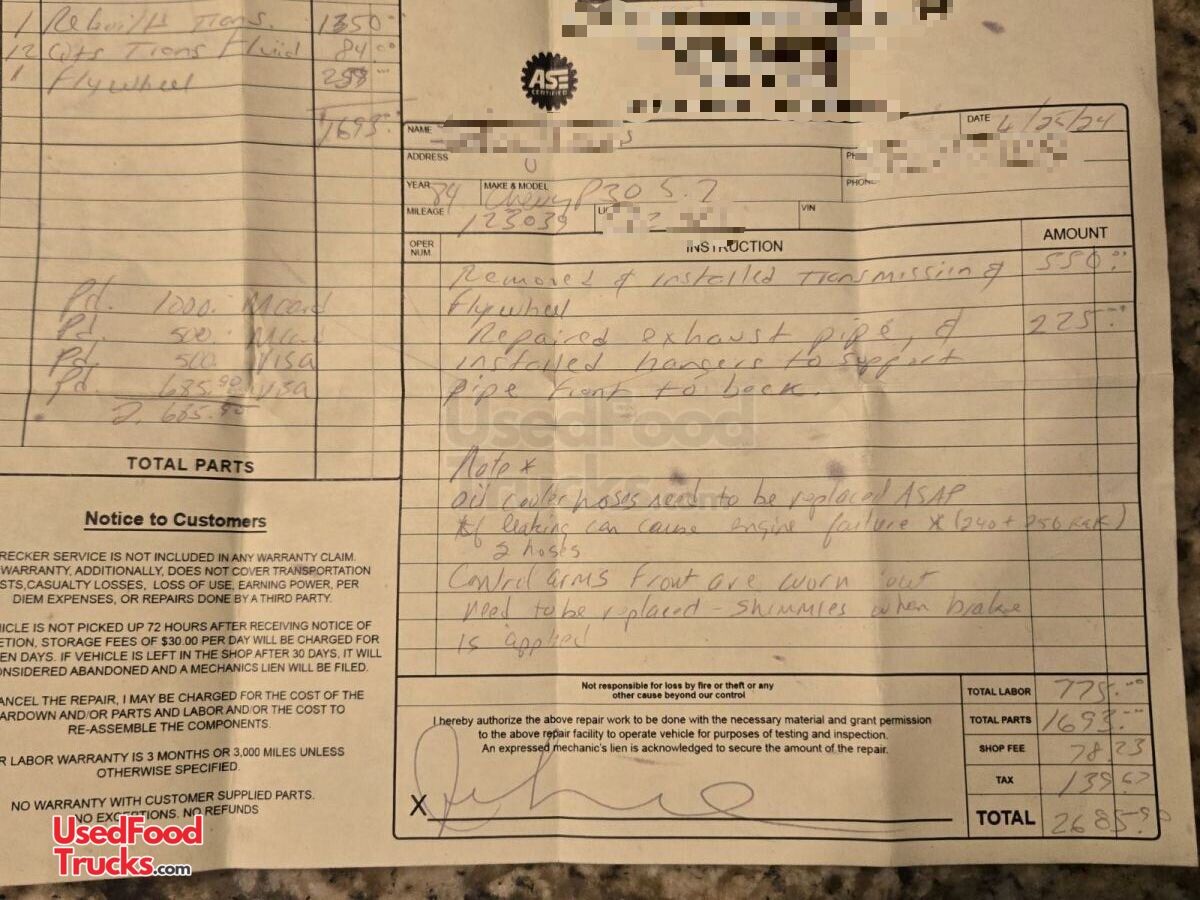 1 Rebuilt Trans. 1350
12 Qts Trans Fluid 84.00
1 Flywheel 259
1693
Pd. 1000. Mcard
Pd. 500. Mcard
Pd. 500. Visa
Pd. 685.90 Visa
2,685.90
TOTAL PARTS
Notice to Customers
RECKER SERVICE IS NOT INCLUDED IN ANY WARRANTY CLAIM.
WARRANTY, ADDITIONALLY, DOES NOT COVER TRANSPORTATION
STS, CASUALTY LOSSES, LOSS OF USE, EARNING POWER, PER
DIEM EXPENSES, OR REPAIRS DONE BY A THIRD PARTY.
HICLE IS NOT PICKED UP 72 HOURS AFTER RECEIVING NOTICE OF
ETION, STORAGE FEES OF $30.00 PER DAY WILL BE CHARGED FOR
EN DAYS. IF VEHICLE IS LEFT IN THE SHOP AFTER 30 DAYS, IT WILL
ONSIDERED ABANDONED AND A MECHANICS LIEN WILL BE FILED.
ANCEL THE REPAIR, I MAY BE CHARGED FOR THE COST OF THE
ARDOWN AND/OR PARTS AND LABOR AND/OR THE COST TO
RE-ASSEMBLE THE COMPONENTS.
R LABOR WARRANTY IS 3 MONTHS OR 3,000 MILES UNLESS
OTHERWISE SPECIFIED.
NO WARRANTY WITH CUSTOMER SUPPLIED PARTS.
NO EXCEPTIONS. NO REFUNDS
ASE
CERTIFIED
NAME
DATE 4/25/24
ADDRESS
PH
YEAR 84 MAKE & MODEL Chevy P30 5.7
PHONE
MILEAGE 123039 LI VIN
OPER NUM. INSTRUCTION AMOUNT
Removed & installed Transmission & 550.00
flywheel
Repaired exhaust pipe, & 225.00
installed hangers to support
pipe front to back.
Note *
oil cooler hoses need to be replaced ASAP
If leaking can cause engine failure *(240 + 250
2 hoses
Control arms front are worn out
need to be replaced - shimmies when brake
is applied
Not responsible for loss by fire or theft or any
other cause beyond our control
I hereby authorize the above repair work to be done with the necessary material and grant permission
to the above repair facility to operate vehicle for purposes of testing and inspection.
An expressed mechanic's lien is acknowledged to secure the amount of the repair.
X
TOTAL LABOR 775.00
TOTAL PARTS 1693.00
SHOP FEE 78.23
TAX 139.67
TOTAL 2685.90
UsedFood
Trucks.com
UsedFood
Trucks.com